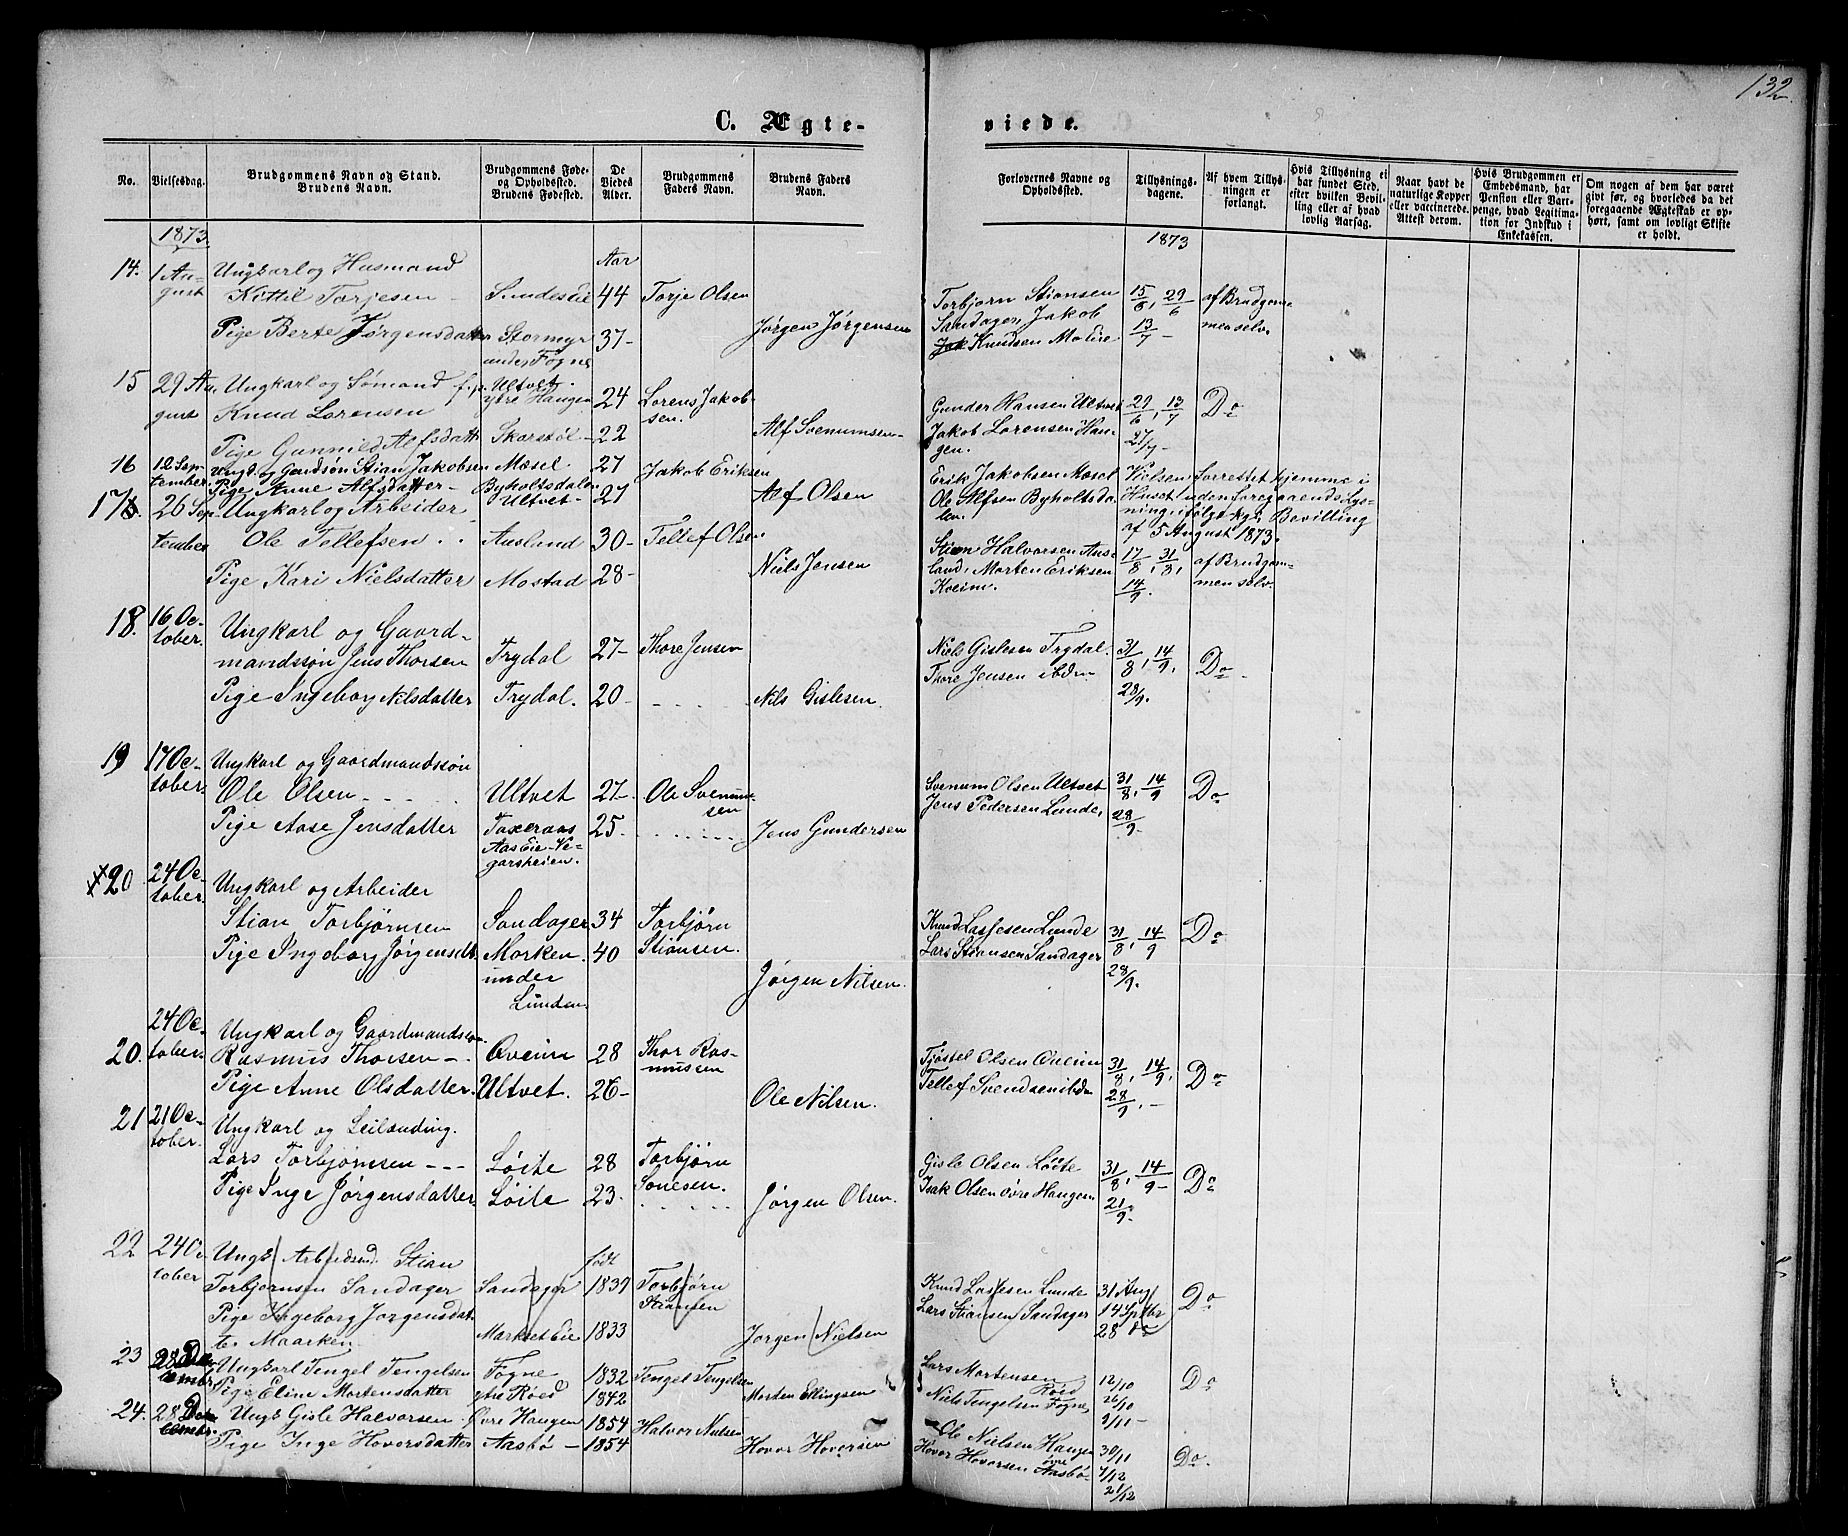 132.
C. Ægte-
viede.
No.
Vielsesdag.
Brudgommens Navn og Stand.
Brudens Navn.
Brudgommens Føde-
og Opholdssted.
Brudens Fødested.
De
Viedes
Alder.
Brudgommens
Faders Navn.
Brudens Faders
Navn.
Forlovernes Navne og
Opholdssted.
Tillysnings-
dagene.
Af hvem Tillys-
ningen er
forlangt.
Hvis Tillysning ei
har fundet Sted,
efter hvilken Bevil-
ling eller af hvad
lovlig Aarsag.
Naar havt de
naturlige Kopper
eller vaccinerede.
Attest derom.
Hvis Brudgommen er
Embedsmand, har
Pension eller Vart-
penge, hvad Legitima-
tion for Indskud i
Enkekassen.
Om nogen af dem har været
gift før, og hvorledes da det
foregaaende Ægteskab er op-
hørt, samt om lovligt Skifte
er holdt.
1873.
1873
14.
1 Au-
gust
Ungkarl og Husmand
Kittil Torjesen
Pige Berte Jørgensdatter
Sundeseie
Stormyr
under Fogne
Aar
44
37-
Torje Olsen
Jørgen Jørgensen
Torbjørn Stiansen
Sandager, Jakob
Knudsen Mo Eie
15/6, 29/6
13/7 -
af Brudgom-
men selv.
15
29 Au-
gust
Ungkarl og Sømand f. p. Ultvet.
Knud Lorensen
Pige Gunnild Alfsdatt
ytre Haugen
Skorstøl
24
22
Lorens Jakob-
sen.
Alf Svenumsen
Gunder Hansen Ultvet
Jakob Lorensen Hau-
gen.
29/6, 13/7
27/7 -
Do
16
12 Sep-
tember
Ungk. og Gaardsøn Stian Jakobsen
Pige Anne Alfsdatter
Mæsel
Byholtsdalen
Ultvet
27
27
Jakob Eriksen
Alf Olsen
Erik Jakobsen Mæsel
Ole Alfsen Byholtsda-
len.
Vielsen forrettet hjemme i
Huset uden foregaaende Lys-
ning, ifølge kgl. Bevilling
af 5 August 1873.
17.
26 Sep-
tember
Ungkarl og Arbeider
Ole Tellefsen
Pige Kari Nielsdatter
Ausland
Mostad
30-
28-
Tellef Olsen
Niels Jensen
Stian Halvorsen Aus-
land, Morten Eriksen
Kveim.
17/8, 31/8,
14/9.
af Brudgom-
men selv.
18.
16 Oc-
tober.
Ungkarl og Gaard-
mandssøn Jens Thorsen
Pige Ingeborg Nilsdatter
Trydal
Trydal.
27-
20-
Thore Jensen
Nils Gislesen
Niels Gislesen Trydal.
Thore Jensen ibdm
31/8, 14/9,
28/9.
Do
19
17 Oc-
tober.
Ungkarl og Gaardmandssøn
Ole Olsen
Pige Aase Jensdatter
Ultvet
Taxeraas
Aas Eie Ve-
garsheien.
27-
25.
Ole Svenum-
sen
Jens Gundersen
Svenum Olsen Ultvet
Jens Pedersen Lunde,
31/8, 14/9
28/9.
Do
20
24 Oc-
tober.
Ungkarl og Arbeider
Stian Torbjørnsen
Pige Ingeborg Jørgensdt.
Sandager
Morken
under
Lunden.
34
40
Torbjørn
Stiansen.
Jørgen Nilsen.
Knud Lassesen Lunde
Lars Stiansen Sandager
31/8, 14/9
28/9.
Do
20.
24 Oc-
tober.
Ungkarl og Gaardmandssøn
Rasmus Thorsen
Pige Anne Olsdatter.
Oveim
Ultvet.
28
26-
Thor Ras-
mussen
Ole Nilsen.
Tjøstel Olsen Oveim
Tellef Svendsen ibdm
31/8, 14/9,
28/9. -
Do
21
21 Oc-
tober.
Ungkarl og Leilænding.
Lars Torbjørnsen
Pige Inge Jørgensdatter
Løite
Løite
28
23.
Torbjørn
Sonesen.
Jørgen Olsen.
Gisle Olsen Løite
Isak Olsen øvre Haugen
31/8, 14/9-
21/9.
Do
22
24 Oc
tober
Ungk. Arbeidsmd. Stian
Torbjørnsen Sandager
Pige Ingeborg Jorgensdat-
ter Maarken
Sandager
født
1839
1833
Torbjørn
Stiansen
Jorgen Nielsen
Knud Lassesen Lunde
Lars Stiansen Sandager
31 Aug
14 Sptbr
28 do
Do
23
28 De
cembr
Ungkarl Tengel Tengelsen
Pige Eline Mortensdatter
Fogne
ytre Røed
1832
1842
Tengel Tengelsen
Morten Ellingsen
Lars Mortensen
Røed
Niels Tengelsen Fogne,
12/10
26/10
9/11 -
Do
24.
28 De
cembr.
Ungk. Gisle Halvorsen
Pige Inge Hovorsdatter
Øvre Haugen
Aasbø
1854
1854
Halvor Nielsen
Hovor Hovorsen
Ole Nielsen Haugen
øvre
Hovor Hovorsen Aasbø
30/11
7/12
21/12
Do.